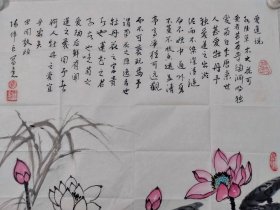 爱莲说
水陆草木之花可
爱者甚蕃晋陶渊明独
爱菊自李唐来世
人甚爱牡丹予
独爱莲之出淤
泥而不染濯清涟
而不妖中通外直
不蔓不枝香远益清
亭亭净植可远观
而不可亵玩焉予
谓菊花之隐逸者也
牡丹花之富贵
者也莲花之君
子者也噫菊之
爱陶后鲜有闻
莲之爱同予者
何人牡丹之爱宜
乎众矣